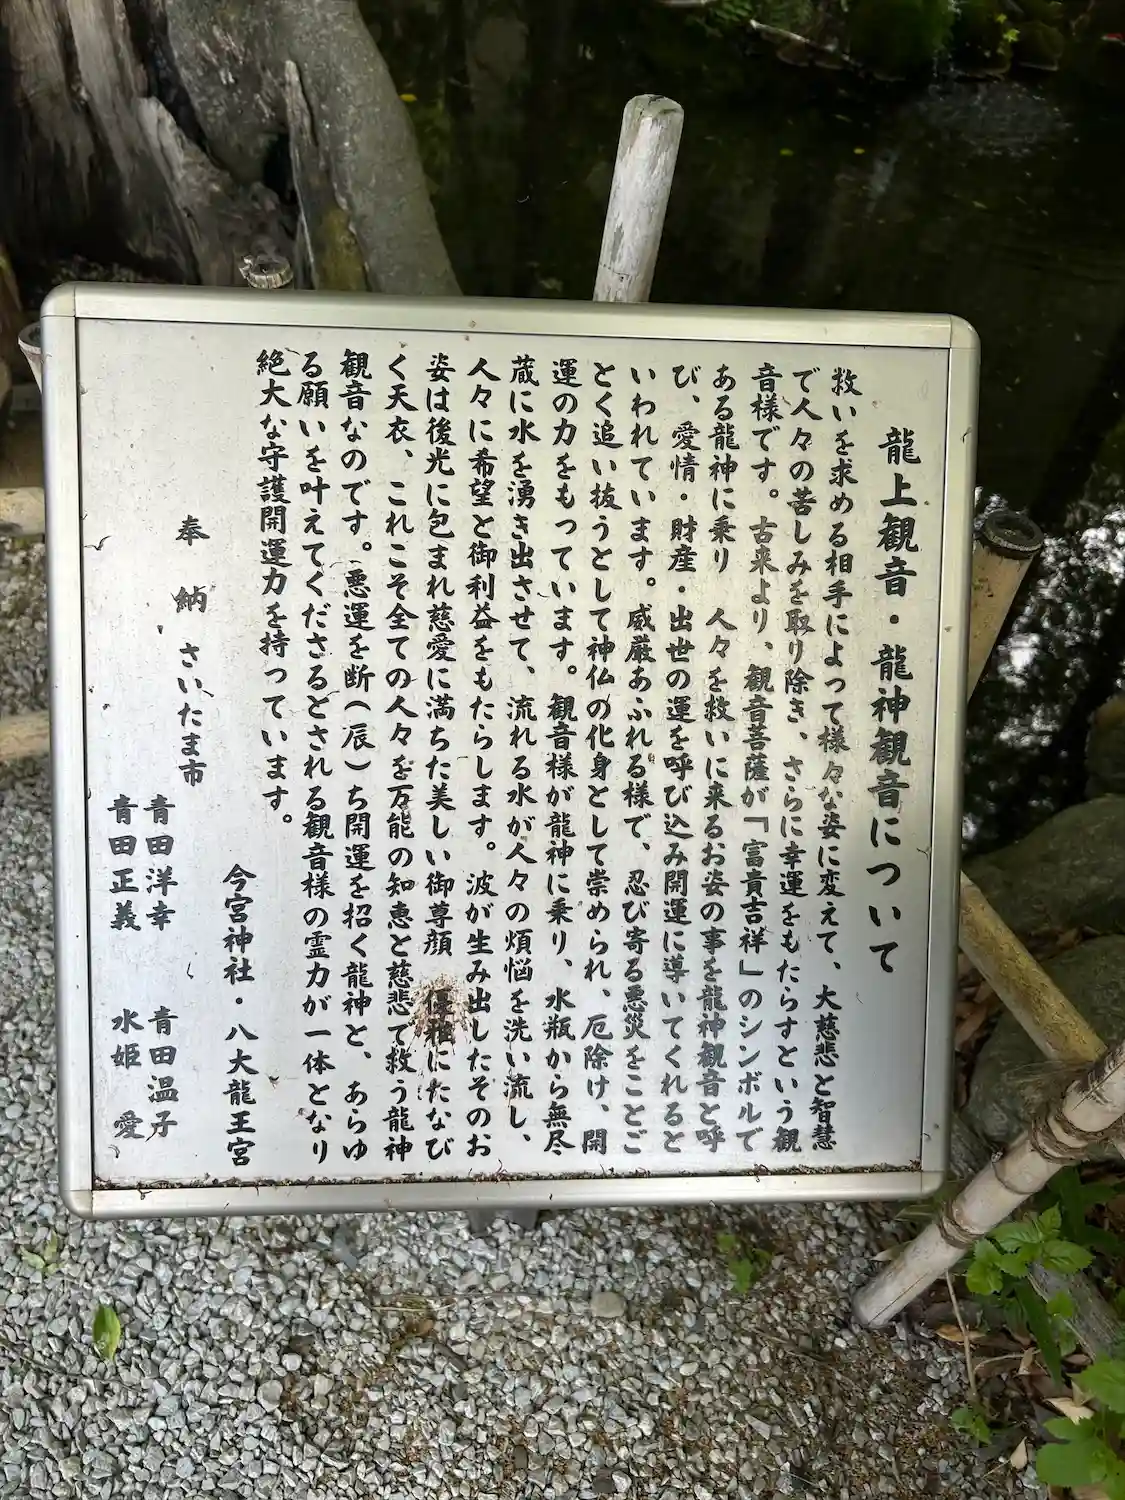 龍上観音・龍神観音について
救いを求める相手によって様々な姿に変えて、大慈悲と智慧
で人々の苦しみを取り除き、さらに幸運をもたらすという観
音様です。古来より、観音菩薩が「富貴吉祥」のシンボルで
ある龍神に乗り 人々を救いに来るお姿の事を龍神観音と呼
び、愛情・財産・出世の運を呼び込み開運に導いてくれると
いわれています。威厳あふれる様で、忍び寄る悪災をことご
とく追い抜うとして神仏の化身として崇められ、厄除け、開
運の力をもっています。観音様が龍神に乗り、水瓶から無尽
蔵に水を湧き出させて、流れる水が人々の煩悩を洗い流し、
人々に希望と御利益をもたらします。波が生み出したそのお
姿は後光に包まれ慈愛に満ちた美しい御尊顔 優雅にたなび
く天衣、これこそ全ての人々を万能の知恵と慈悲で救う龍神
観音なのです。悪運を断(辰)ち開運を招く龍神と、あらゆ
る願いを叶えてくださるとされる観音様の霊力が一体となり
絶大な守護開運力を持っています。
今宮神社・八大龍王宮
奉 納 さいたま市
青田洋幸 青田温子
青田正義 水姫 愛